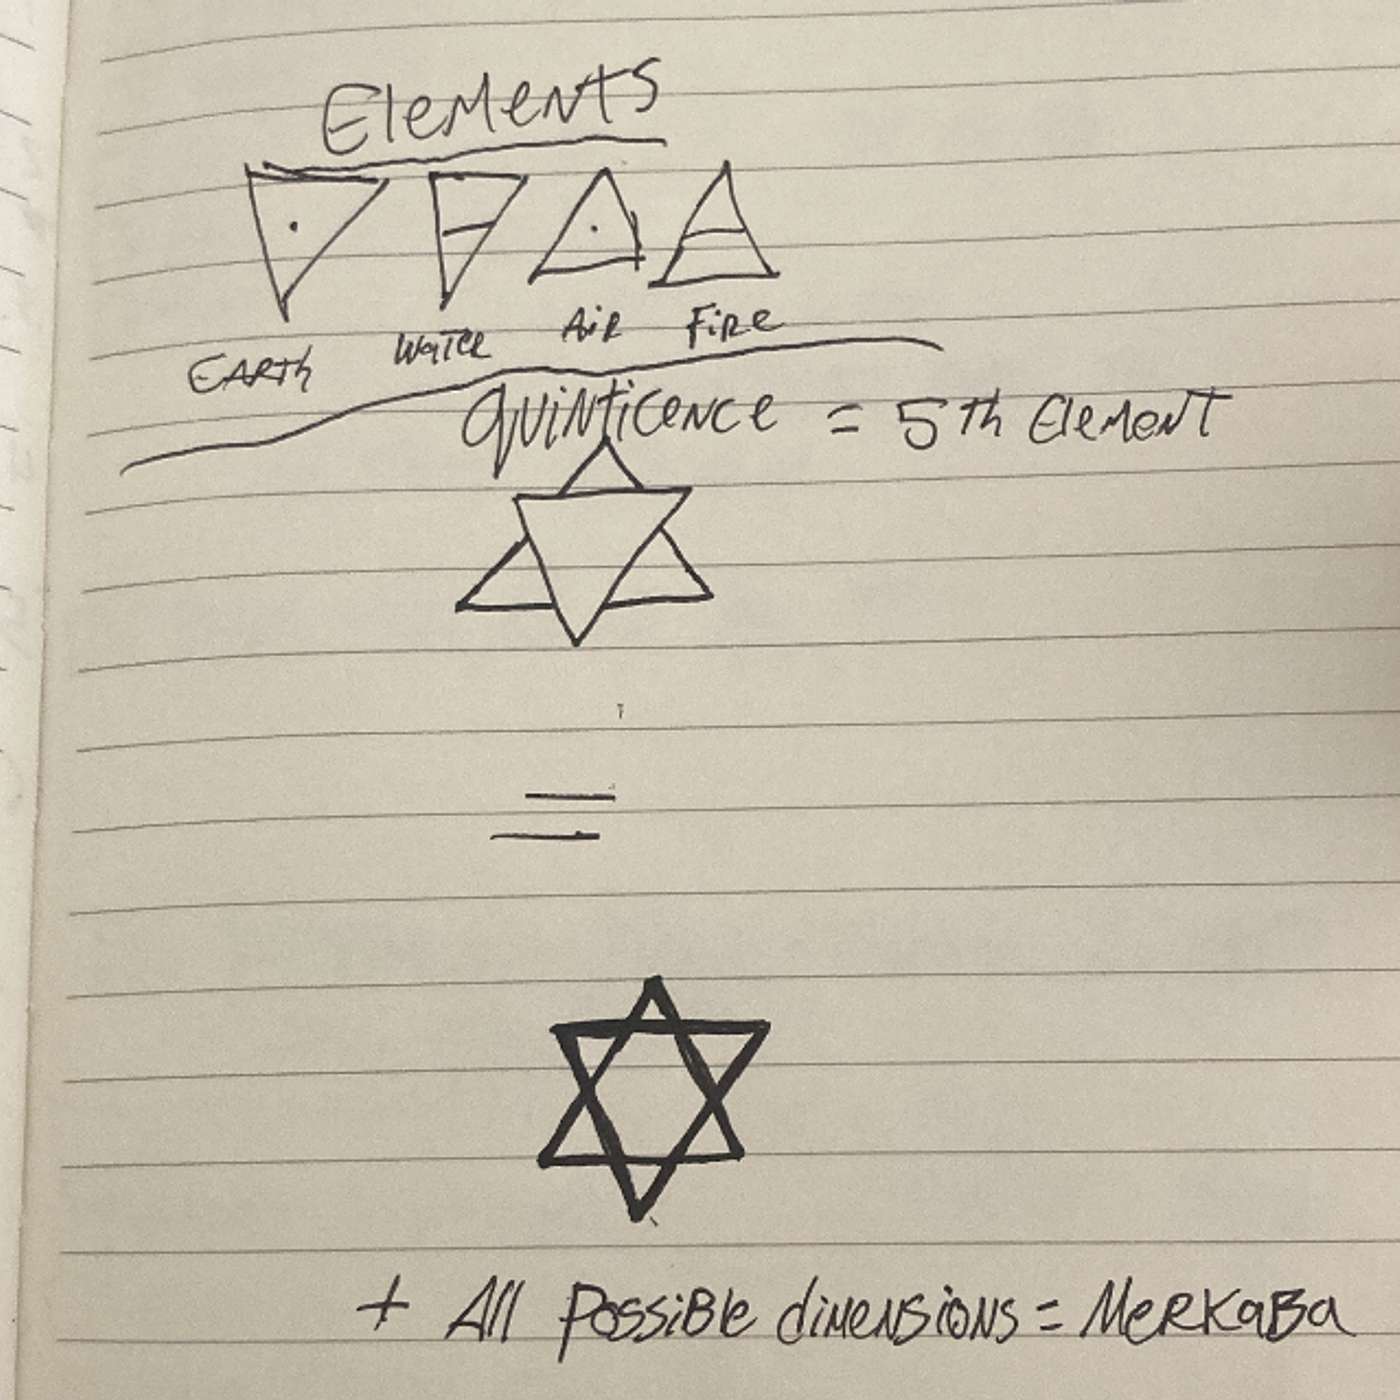 Elements
EARTH Water Air Fire
Quinticence = 5th Element
=
+ All Possible dimensions = MerKaBa